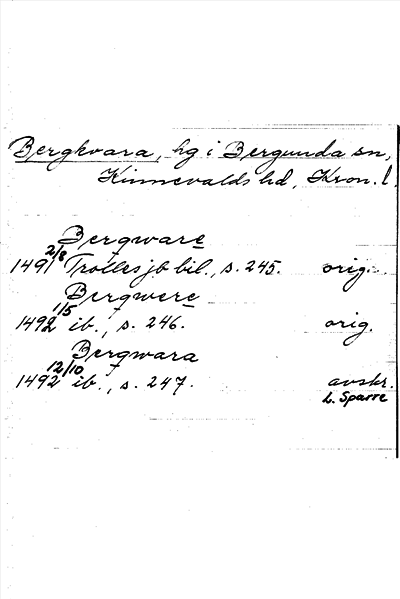 Bergkvara, hg i Bergunda sn,
Kinnevalds hd, Kron. l.
Bergware
1491 2/8 Trolles jb bil., s. 245. orig.
Bergwere
1492 1/5 ib., s. 246. orig.
Bergwara
1492 12/10 ib., s. 247. avskr.
L. Sparre